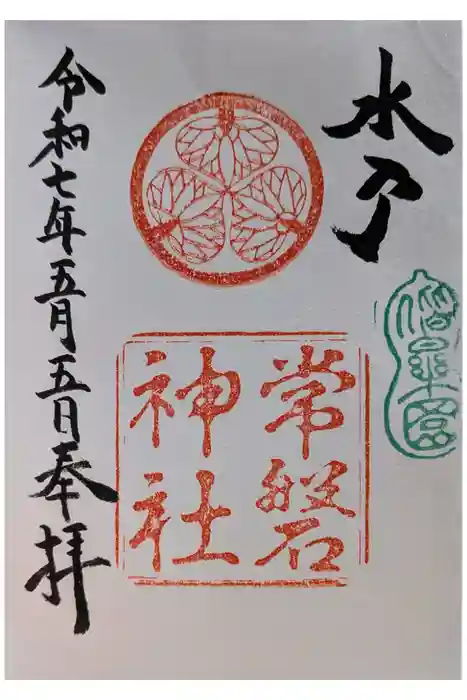 水戸
偕楽園
常磐
神社
令和七年五月五日奉拝